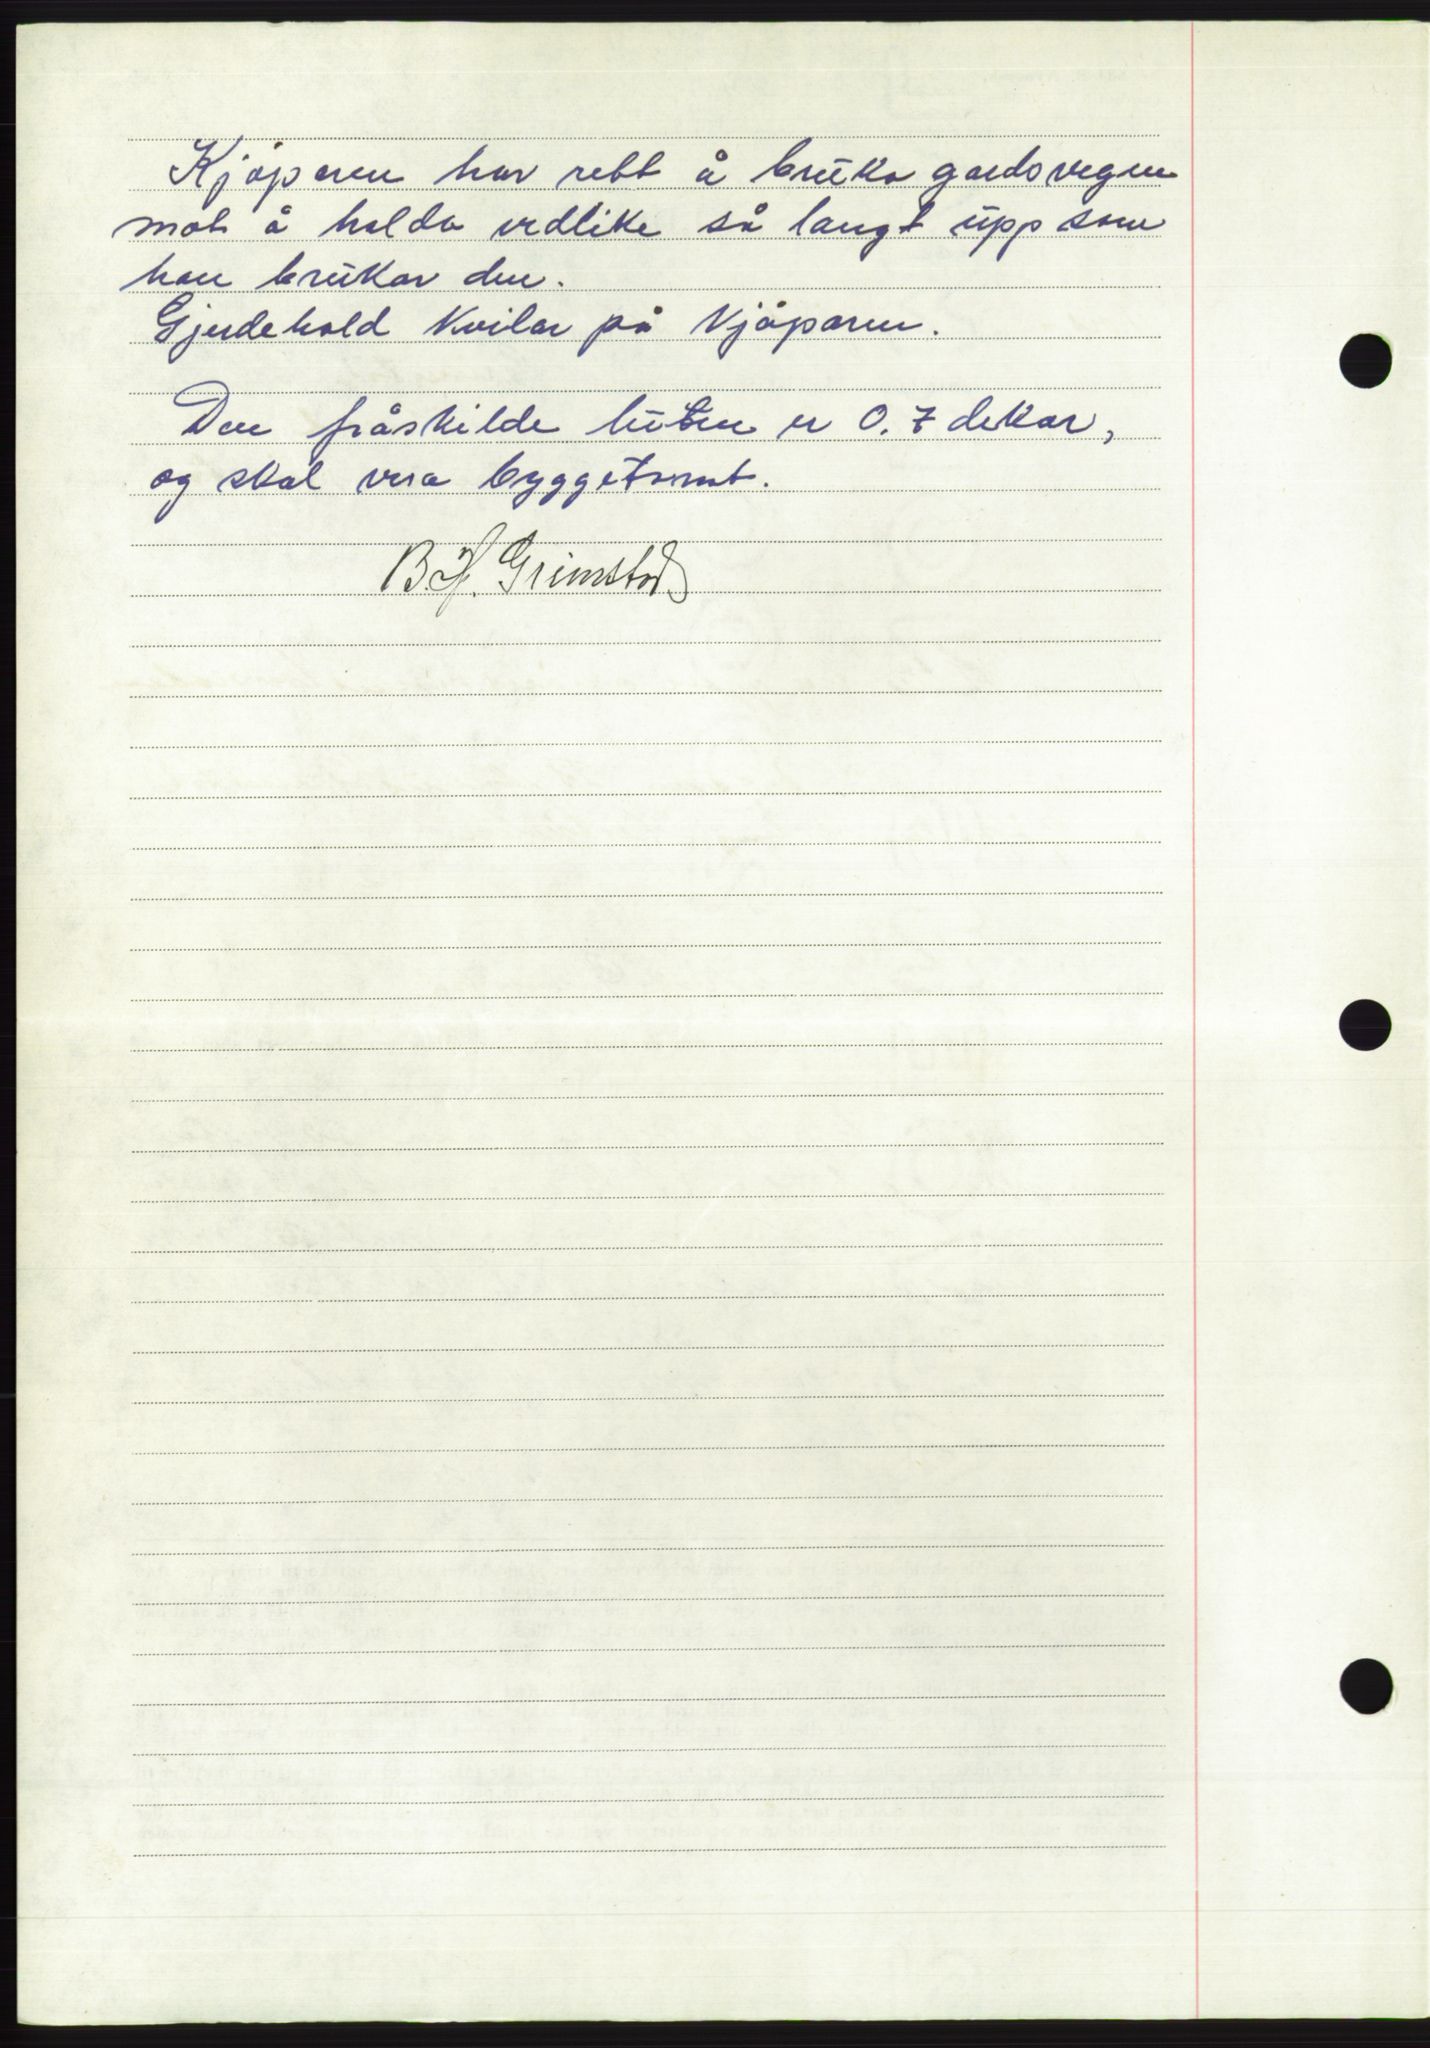 Kjøparen har rett å bruka gardsvegen
mot å halda vedlike så langt upp som
han brukar den.
Gjerdehald kvilar på kjøparen.
Den fråskilde luten er 0.7 dekar,
og skal vera byggetomt.
B. H. Grimstad